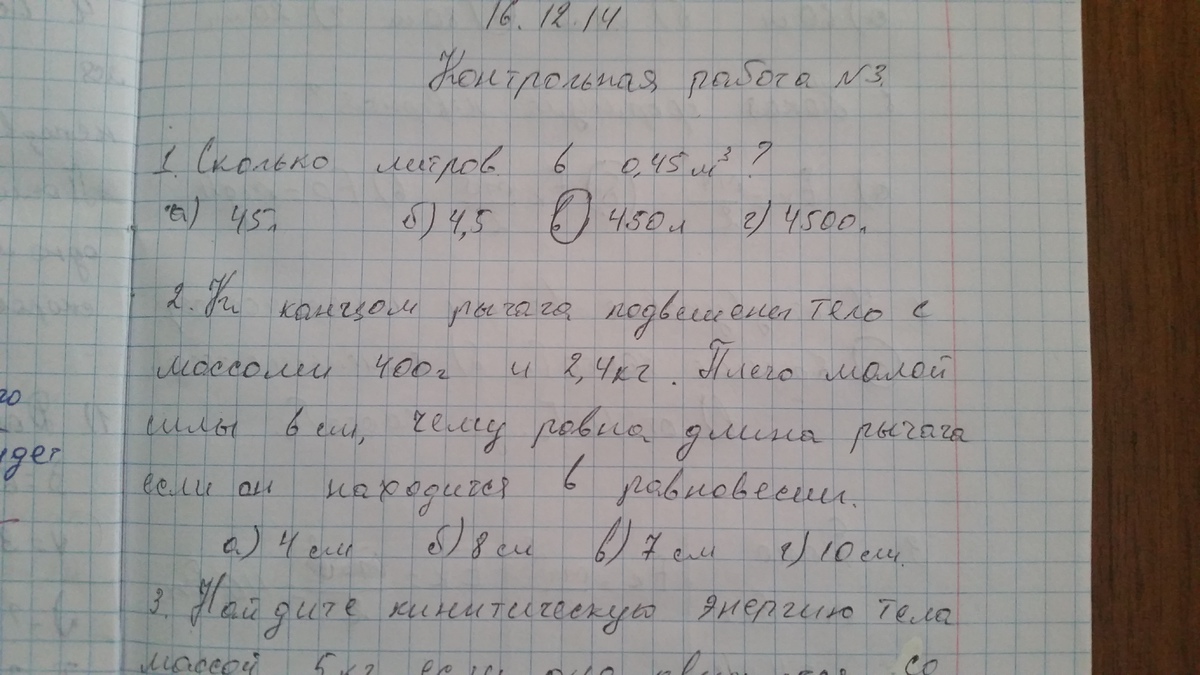 16.12.14
Контрольная работа №3.
1. Сколько литров в 0,45м³?
а) 45л б) 4,5 в) 450л г) 4500л
2. К канцом рычага подвешены тело с
массоми 400г и 2,4кг. Плечо малой
силы 6см, чему равна длина рычага
если он находится в равновесии.
а) 4см б) 8см в) 7см г) 10см.
3. Найдите кинитическую энергию тела
массой 5кг если оно со
го
дет